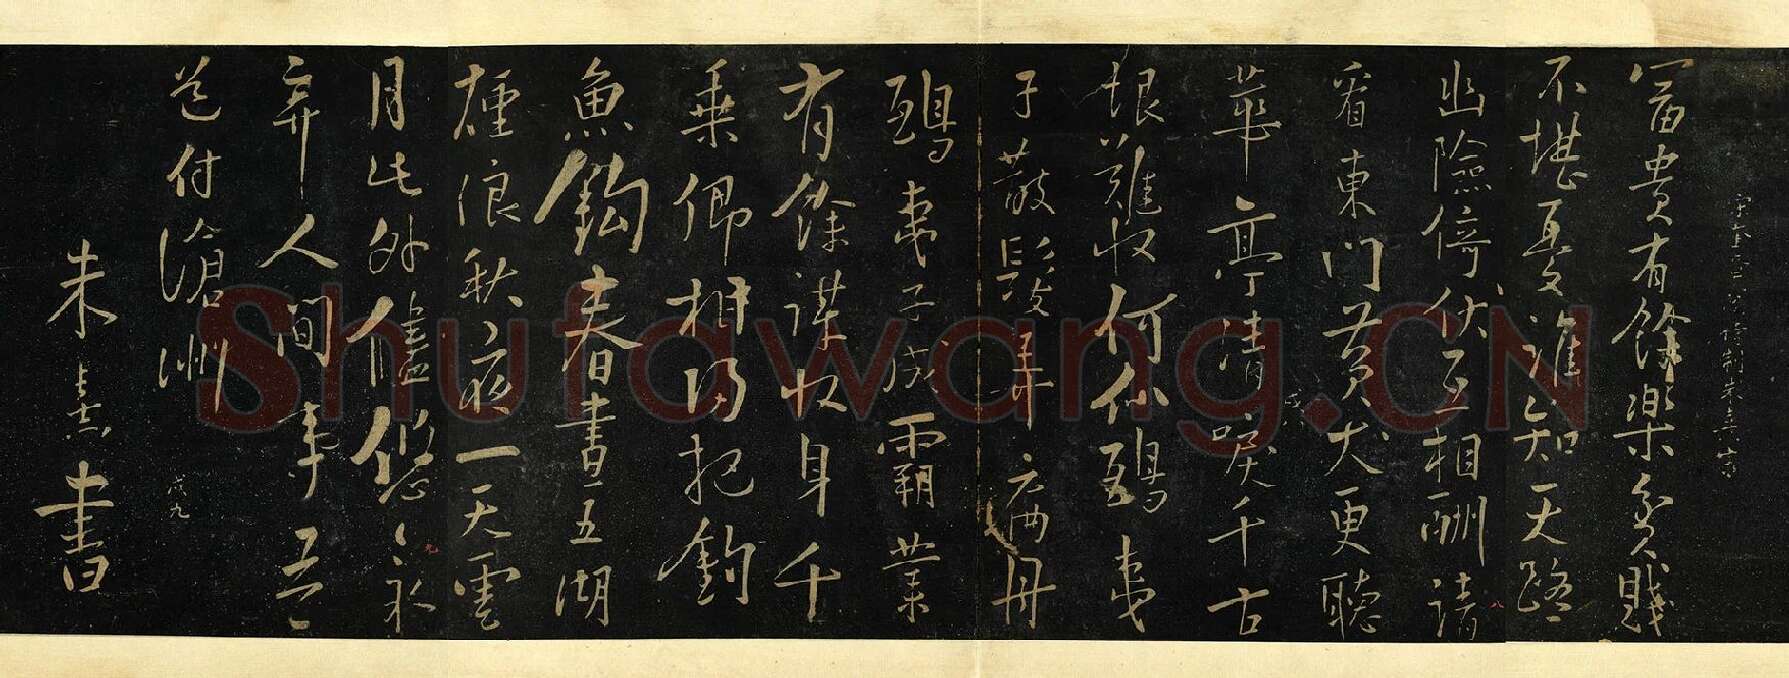 富貴有餘樂貧賤
不堪憂誰知天路
幽險倚伏互相酬請
看東門黃犬更聽
華亭清唳千古
恨難收何似鴟夷
子散髮弄扁舟
鴟夷子成霸業
有餘謀収身千
乗卿相歸把釣
魚鈎春晝五湖
煙浪秋夜一天雲
月此外儘悠悠永
弃人間事吾
道付滄洲
朱熹書
Shufawang.CN